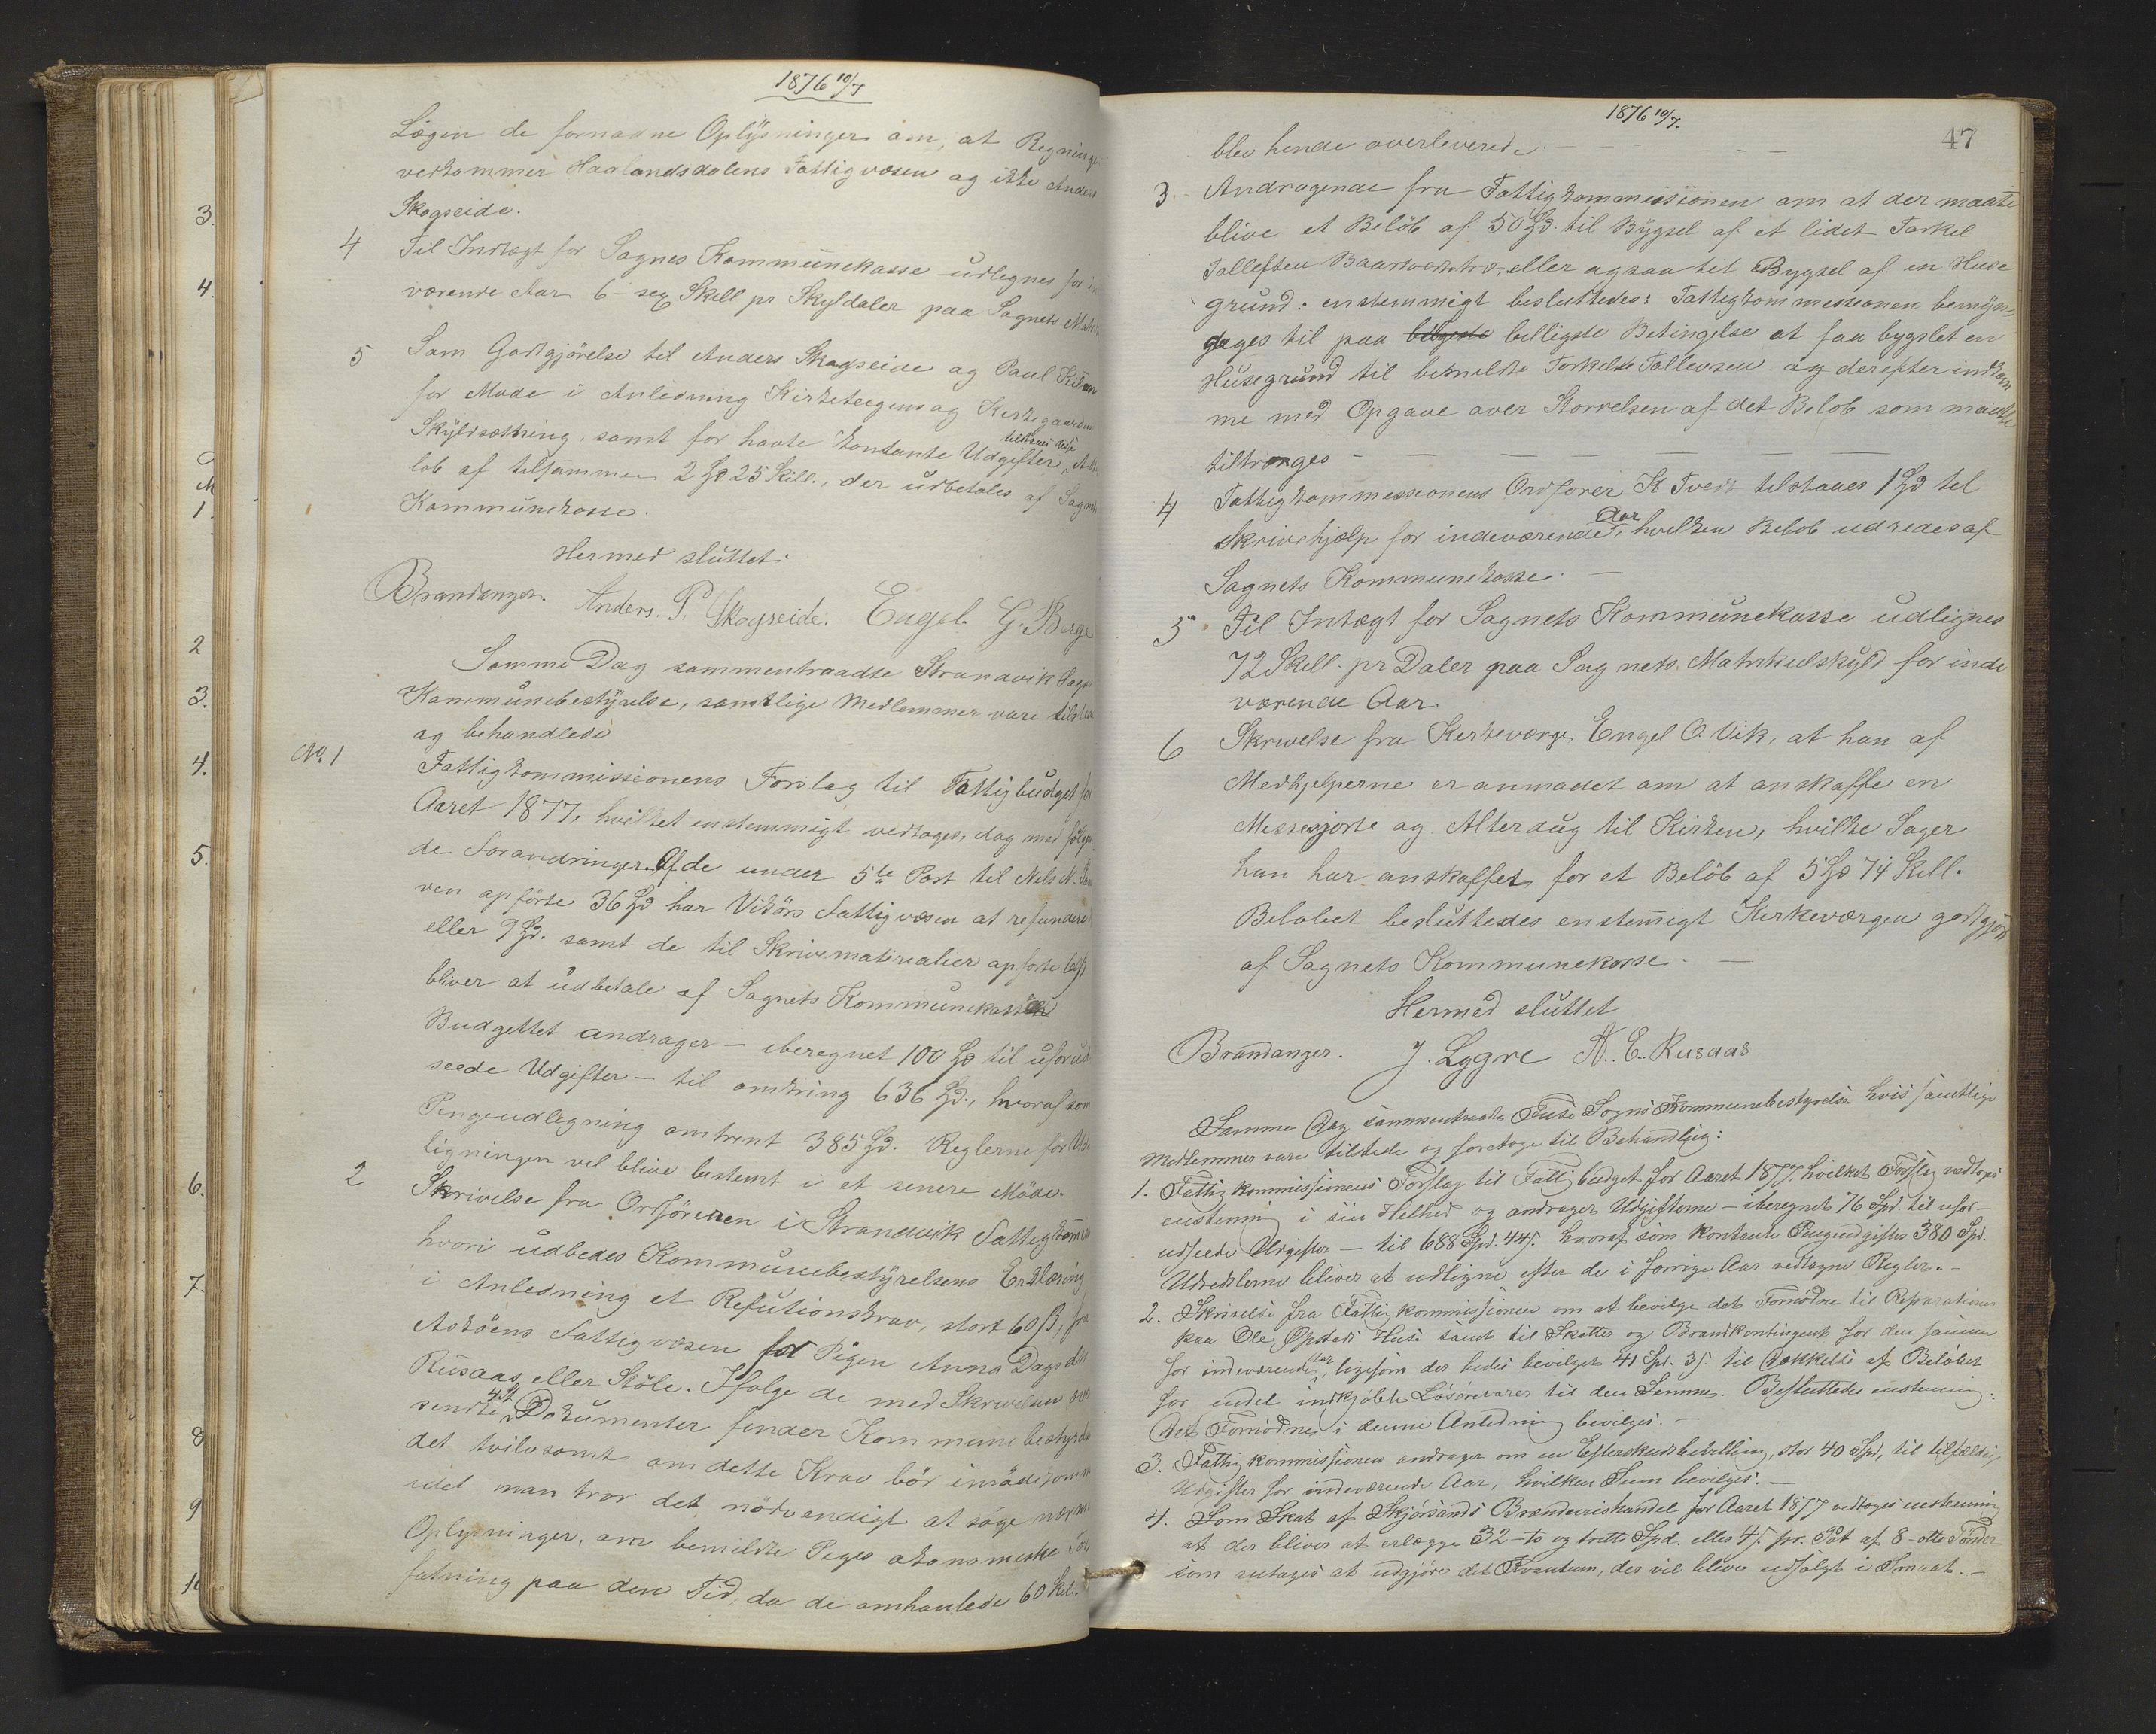 1876 10/7
Lægen de fornødne Oplysninger om, at Regninge
vedkommer Haalandsdalens Fattigvæsen og ikke Anders
Skogseide.
4 Til Indtægt for Sognes Kommunekasse udlignes for in
værende Aar 6 - sex Skill pr Skyldaler paa Sognets Matr
5 Som Godtgjörelse til Anders Skogseide og Paul
for Mode i Anledning Kirketeigens og Kirkegaardens
Skyldsætning, samt for havte kontante Udgifter, tilstaaes dem
löb af tilsammen 2 Spd 25 Skill., der udbetales af Sogne
Kommunekasse.
Hermed sluttet.
Brandanger. Anders. P. Skogseide. Engel. G. Berge
Samme Dag sammentraadte Strandvik Sogns
Kommunebestÿrelse, samtlige Medlemmer vare tilstede
og behandlede
No 1 Fattigkommissionens Forslag til Fattigbudget for
Aaret 1877, hvilket enstemmigt vedtoges, dog med følgen
de Forandringer. Af de under 5te Post til Nels N.
ven opförte 36 Spd har Vikörs Fattigvæsen at refundere
eller 9 Spd. samt de til Skrivematerialier opførte
bliver at udbetale af Sognets Kommunekasse
Budgettet andrager - iberegnet 100 Spd til uforud
seede Udgifter - til omkring 636 Spd., hvoraf som
Pengeudlegning omtrent 385 Spd. Reglerne for Ud
ligningen vil blive bestemt i et senere Möde.
2 Skrivelse fra Ordföreren i Strandvik Fattigkom
hvori udbedes Kommunebestyrelsens Erklæring
i Anledning et Refutionskrav, stort 60 ß, fra
Asköens Fattigvæsen for Pigen Anna Dags dtr
Rusaas eller Stöle. Ifølge de med Skrivelsen over
sendte 4 St Dokumenter finder Kommunebestyrelse
det tvilsomt om dette Krav bör imödekomm
idet man tror det nödvendigt at söge nærm
Oplysninger, om bemeldte Piges økonomiske For
fatning paa den Tid, da de omhandlede 60 Skill.
3.
4.
1
2
3.
4.
5.
6.
7.
8
9
10
1876 10/7.
47
blev hende overleverede.
3 Andragende fra Fattigkommissionen om at der maatte
blive et Belöb af 50 Spd. til Bÿgsel af et lidet
Tolleftsen eller ogsaa til Bygsel af en Huse
grund: enstemmigt besluttedes: Fattigkommissionen bemÿn-
diges til paa billigste Betingelse at faa bygslet en
Husegrund til bemeldte Torkels Tollevsen og derefter indkom
me med Opgave over Storrelsen af det Beløb som maatte
tiltrænges
4 Fattigkommissionens Ordforer Tvedt tilstaaes 1 Spd til
Skrivehjælp for indeværende Aar, hvilken Beløb udredes af
Sognets Kommunekasse.
5 Til Intægt for Sognets Kommunekasse udlignes
72 Skill. pr Daler paa Sognets Matrikulskyld for inde
værende Aar.
6 Skrivelse fra Kirkeværge Engel O. Vik, at han af
Medhjelperne er anmodet om at anskaffe en
Messesjorte og Alterdug til Kirken, hvilke Sager
han har anskaffet for et Belöb af 5 Spd 74 Skill.
Beløbet besluttedes enstemigt Kirkeværgen godtgjort
af Sognets Kommunekasse.
Hermed sluttet
Brandanger. J. Lygre N. E. Rusaas
Samme Dag sammentraadte Fuse Sogns Kommunebestyrelse hvis samtlige
Medlemmer vare tilstede og foretoges til Behandling:
1. Fattigkommissionens Forslag til Fattigbudget for Aaret 1877, hvilket Forslag vedtoges
enstemmig i sin Helhed og andrager Udgifterne - iberegnet 76 Spd. til ufor-
udseede Udgifter - til 688 Spd. 44 s. hvoraf som kontante Pengeudgifter 380 Spd.
Udredslerne bliver at udligne efter de i forrige Aar vedtagne Regler. -
2. Skrivelse fra Fattigkommissionen om at bevilge det Fornødne til Reparationer
paa Ole Opstads Huse samt til Skatter og Brandkontingent for den samme
for indeværende Aar, ligesom der bedes bevilget 41 Spd. 3 s. til Dækkelse af Beløbet
for endel indkjøbte Løsørevarer til den Samme. Besluttedes enstemmig:
Det Fornødne i denne Anledning bevilges. -
3. Fattigkommissionen andrager om en Efterskudsbevilling, stor 40 Spd, til tilfældige
Udgifter for indeværende Aar, hvilken Sum bevilges. -
4. Som Skat af Skjørsands Brændevinshandel for Aaret 1877 vedtoges enstemmig
at der bliver at erlægge 32 - to og tretti Spd. eller 4 s. pr. Pot af 8 - otte Tønder
som antages at udgjøre det Kvantum, der vil blive udsolgt i Smaat. -